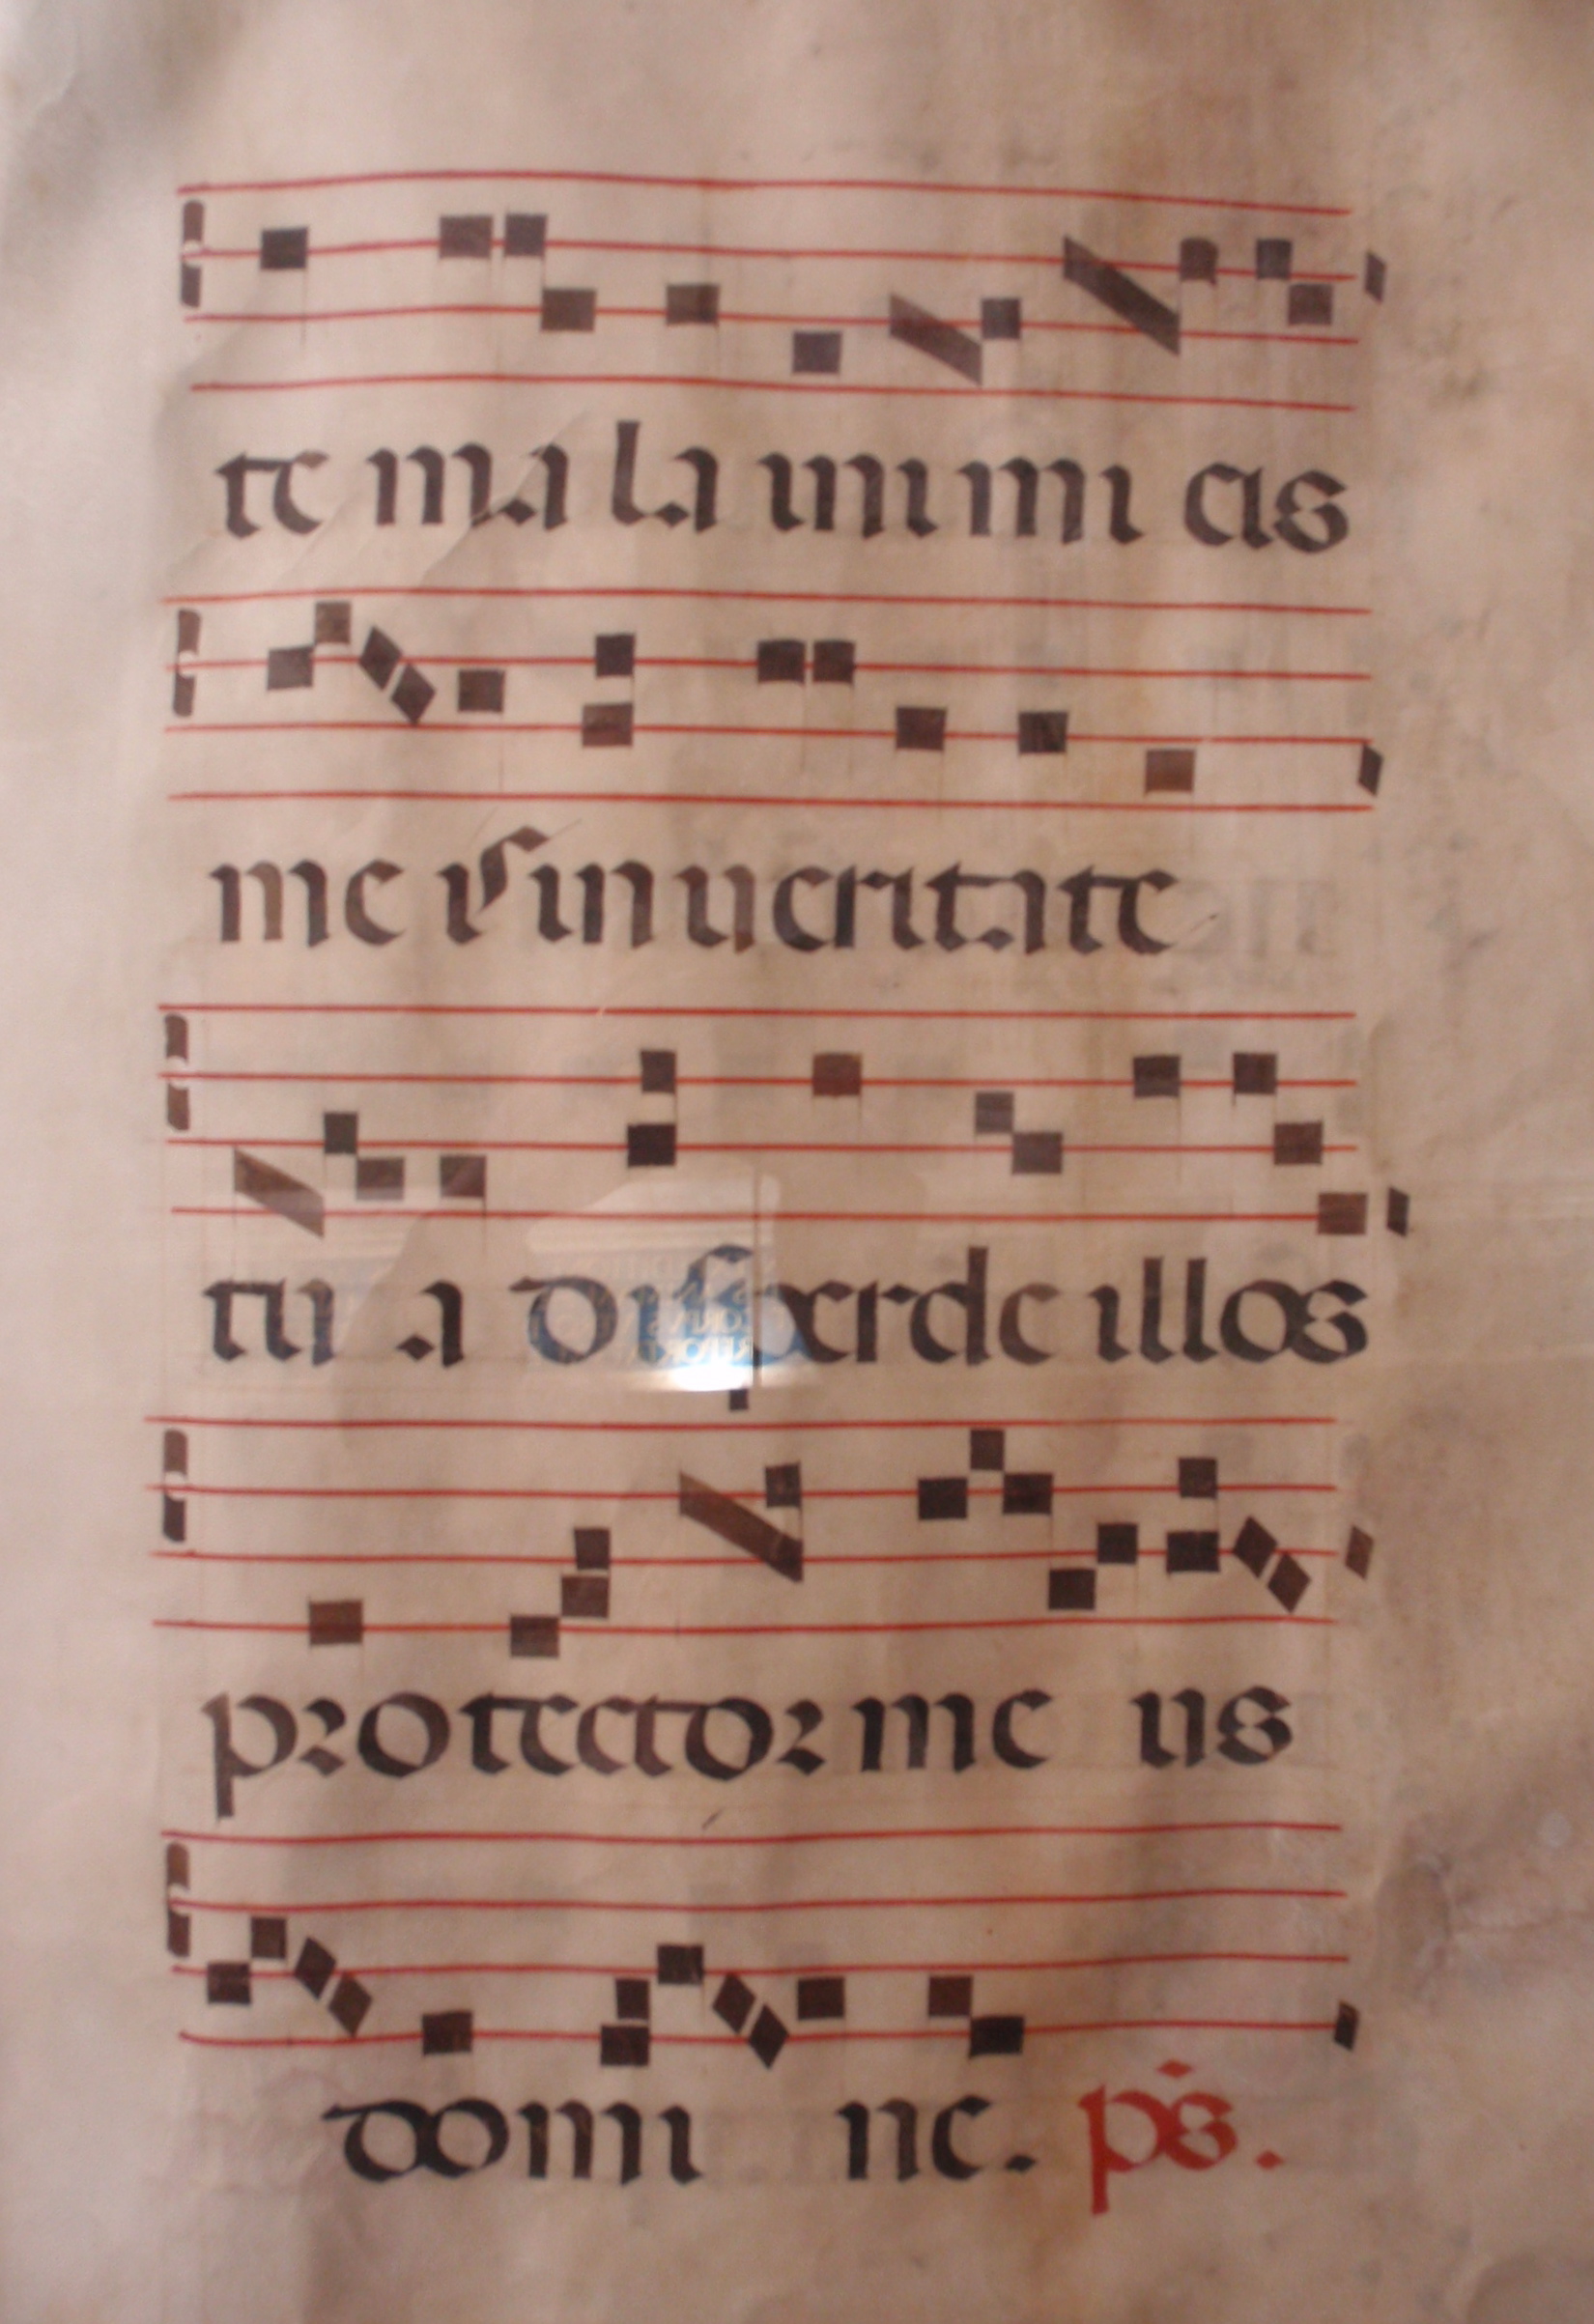 te mala inimi cis
meis in veritate
tu a disperde illos
protector me us
domi ne. ps.